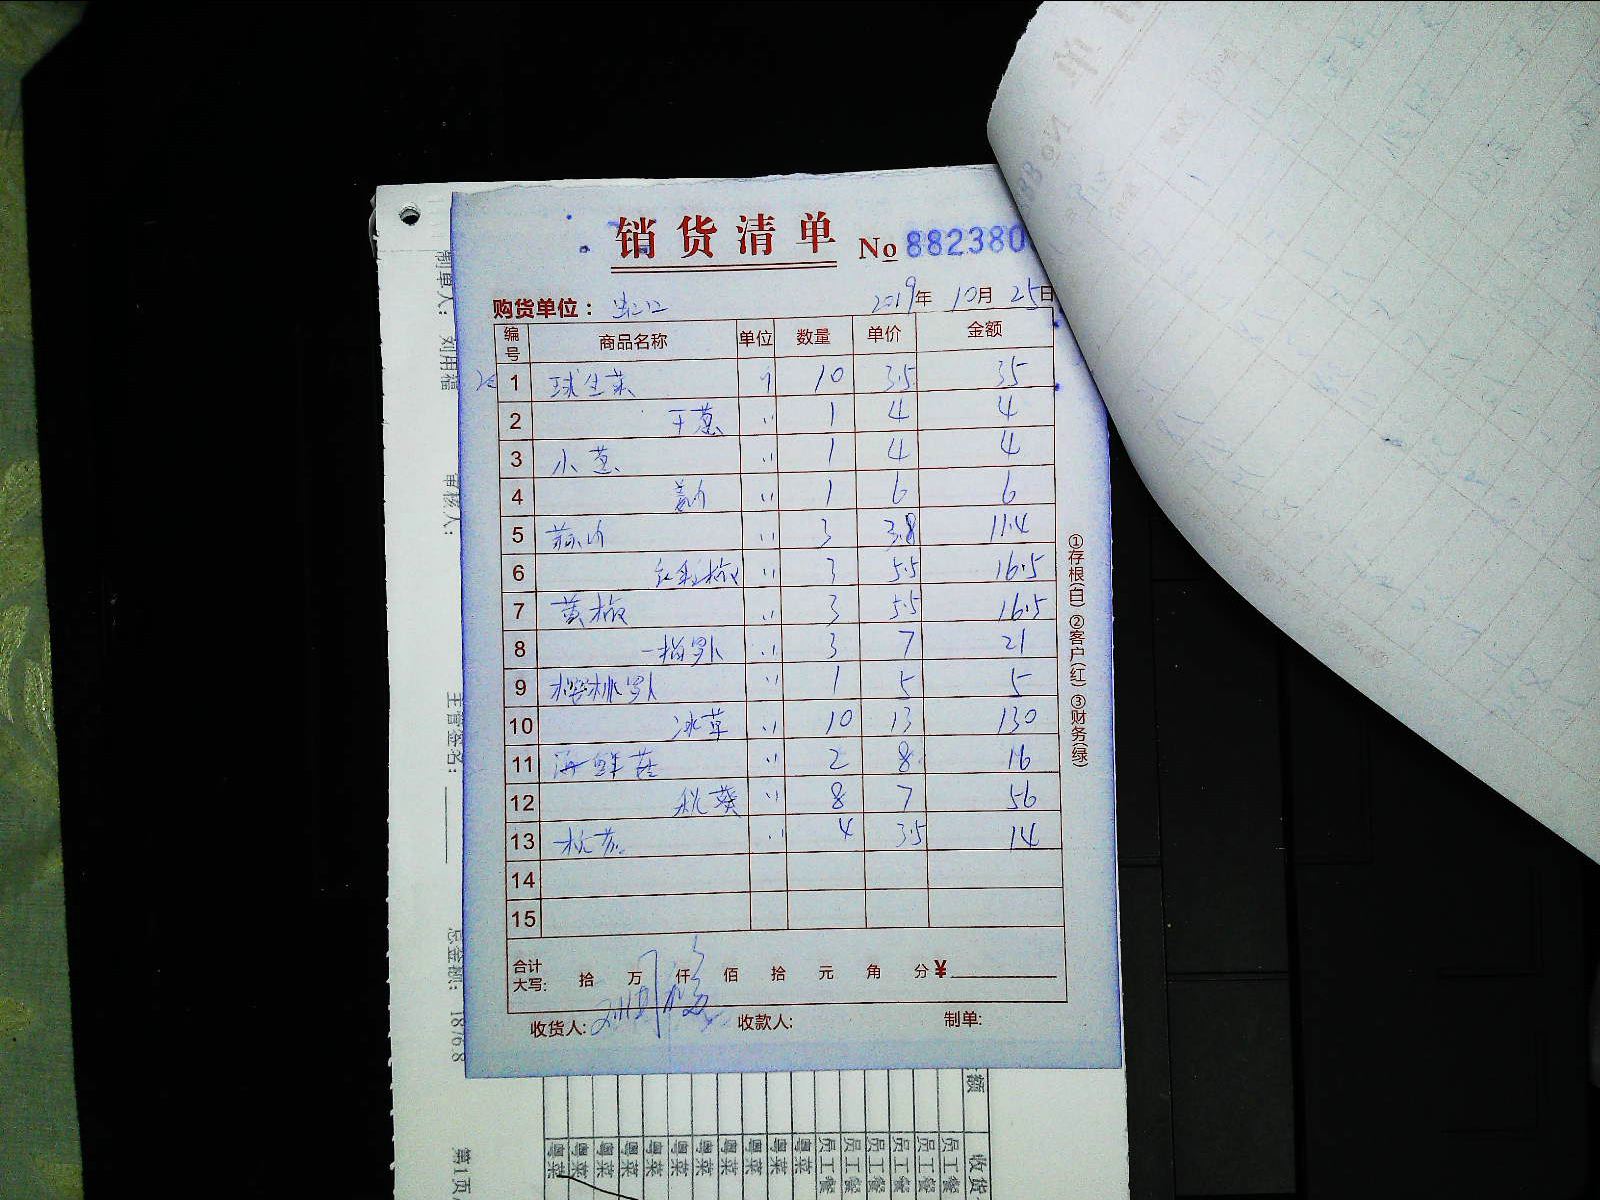 销货清单 No 882380
购货单位： 2019年 10月 25日
编号 商品名称 单位 数量 单价 金额
1 球生菜 10 3.5 35
2 干葱 〃 1 4 4
3 小葱 〃 1 4 4
4 〃 1 6 6
5 〃 3 3.8 11.4
6 〃 3 5.5 16.5
7 黄椒 〃 3 5.5 16.5
8 〃 3 7 21
9 樱桃罗卜 〃 1 5 5
10 冰草 〃 10 13 130
11 海鲜菇 〃 2 8 16
12 秋葵 〃 8 7 56
13 〃 4 3.5 14
14
15
合计大写： 拾 万 仟 佰 拾 元 角 分 ¥
收货人： 刘用福 收款人： 制单：
①存根(白) ②客户(红) ③财务(绿)
制单人： 刘用福
审核人：
主管签名：
总金额： 1876.8
第1页
收货
员工餐 员工餐 员工餐 员工餐 员工餐 员工餐
粤菜 粤菜 粤菜 粤菜 粤菜 粤菜 粤菜 粤菜 粤菜 粤菜 粤菜